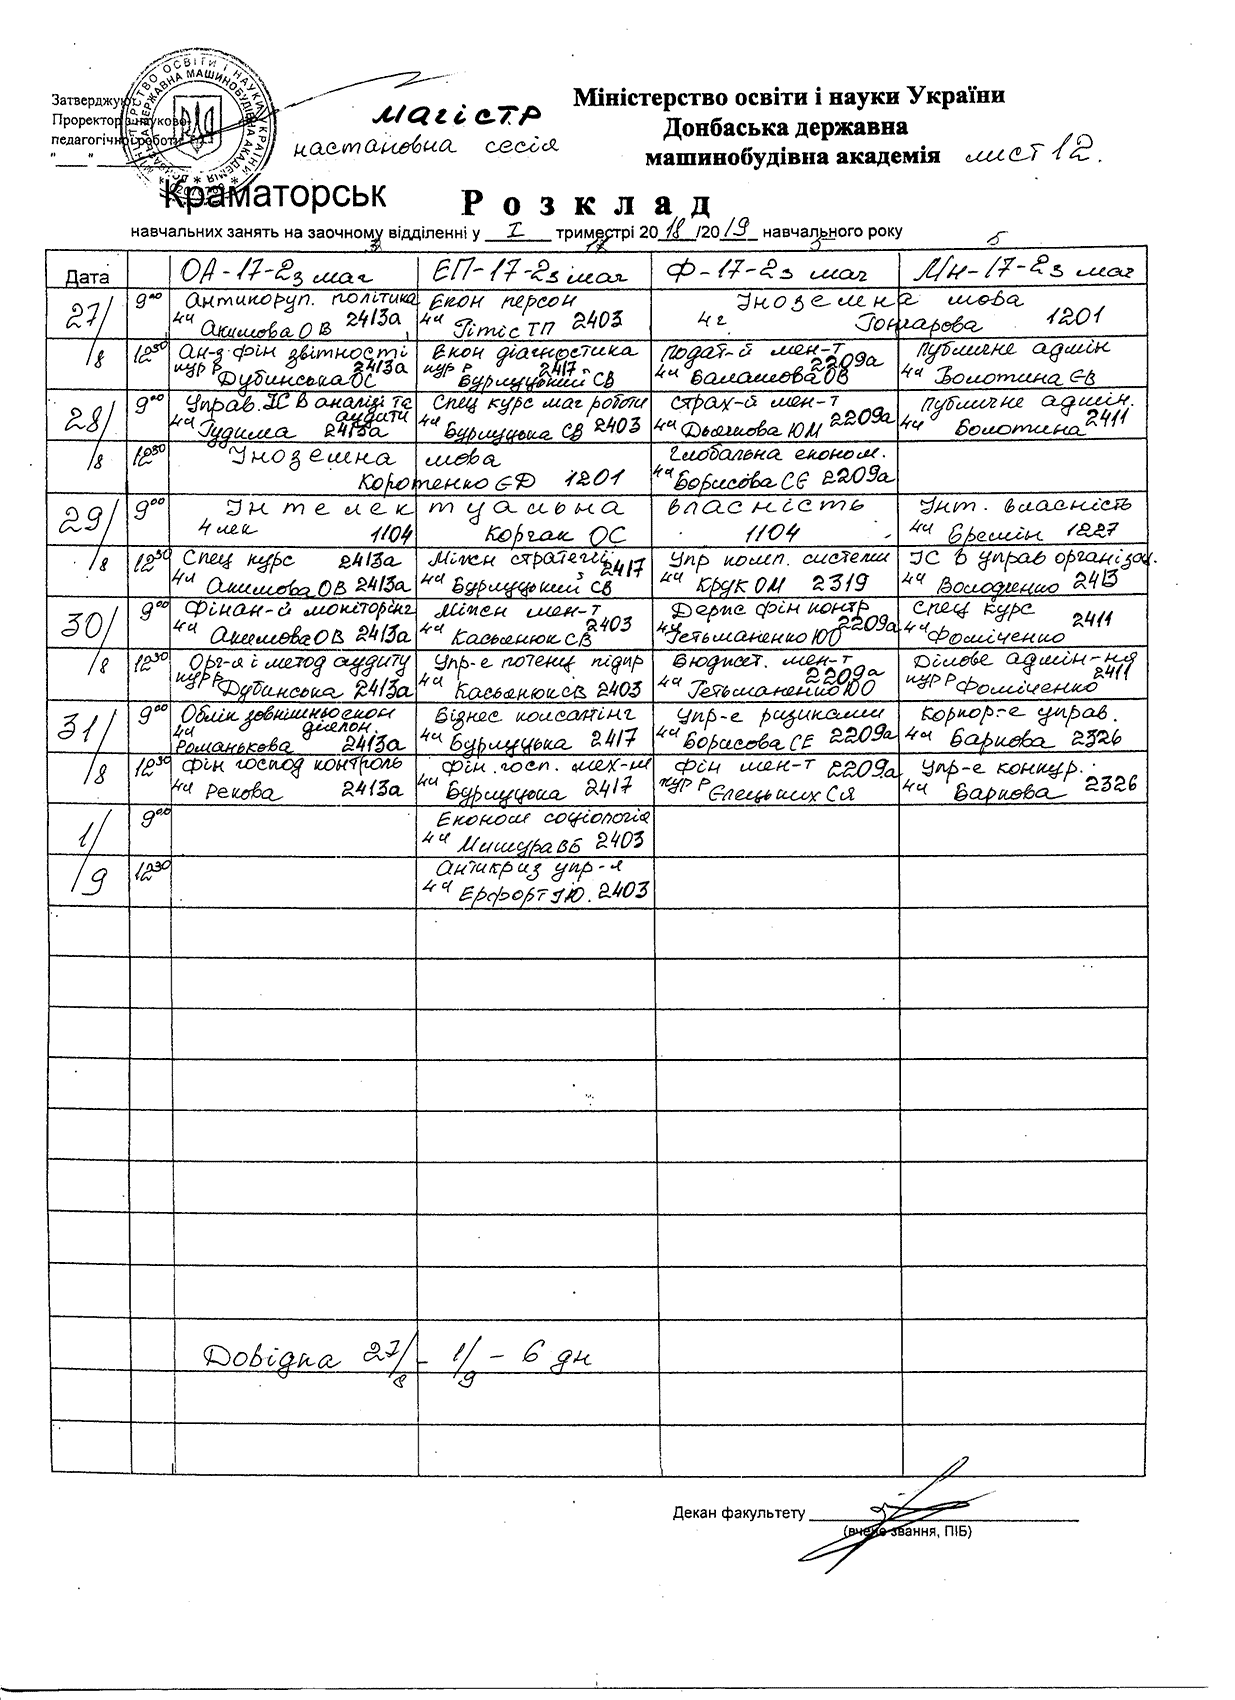 Затверджую
Проректор з науково-
педагогічної роботи
магістр
настановна сесія
Міністерство освіти і науки України
Донбаська державна
машинобудівна академія лист 12.
Краматорськ
Розклад
навчальних занять на заочному відділенні у I триместрі 2018/2019 навчального року
3 12 3 5
Дата ОА-17-2з маг ЕП-17-2з маг Ф-17-2з маг Мн-17-2з маг
27/8 9⁰⁰ Антикоруп. політика Екон персон Іноземна мова
4ч Акимова ОВ 2413а 4ч Гітіс ТП 2403 4г Гончарова 1201
12³⁰ Ан-з фін звітності Екон діагностика Подат-й мен-т Публічне адмін
кур р Дубинська ОС 2413а кур р Бурлуцький СВ 2417 4ч Балашова ОВ 2209а 4ч Болотіна ЄВ
28/8 9⁰⁰ Управ. ІС в аналізі та аудиті Спец курс маг роботи Страх-й мен-т Публічне адмін.
4ч Гудима 2413а 4ч Бурлуцька СВ 2403 4ч Дьячкова ЮМ 2209а 4ч Болотина 2411
12³⁰ Іноземна мова Глобальна економ.
Коротенко ЄД 1201 4ч Борисова СЄ 2209а
29/8 9⁰⁰ Інтелектуальна власність Інт. власність
4 лек 1104 Корчак ОС 1104 4ч Єремін 1227
12³⁰ Спец курс 2413а Міжн стратегії 2417 Упр комп. системи ІС в управ організац.
4ч Акимова ОВ 2413а 4ч Бурлуцький СВ 4ч Крук ОМ 2319 4ч Володченко 2413
30/8 9⁰⁰ Фінан-й моніторінг Міжн мен-т Держ фін контр Спец курс
4ч Акимова ОВ 2413а 4ч Касьянюк СВ 2403 4ч Гетьманенко ЮО 2209а 4ч Фоміченко 2411
12³⁰ Орг-я і метод аудиту Упр-е потенц підпр Бюджет. мен-т Ділове адмін-ня
кур р Дубинська 2413а 4ч Касьянюк СВ 2403 4ч Гетьманенко ЮО 2209а кур р Фоміченко 2411
31/8 9⁰⁰ Облік зовнішньоекон діяльн. Бізнес консалтінг Упр-е ризиками Корпор-е управ.
4ч Романькова 2413а 4ч Бурлуцька 2417 4ч Борисова СЕ 2209а 4ч Баркова 2326
12³⁰ Фін господ контроль Фін. госп. мех-м Фін мен-т 2209а Упр-е конкур.
4ч Рекова 2413а 4ч Бурлуцька 2417 кур р Єлецьких СЯ 4ч Баркова 2326
1/9 9⁰⁰ Економ соціологія
4ч Мишура ВБ 2403
12³⁰ Антикриз упр-я
4ч Ерфорт ІЮ. 2403
Довідка 27/8 - 1/9 - 6 дн
Декан факультету
(вчене звання, ПІБ)